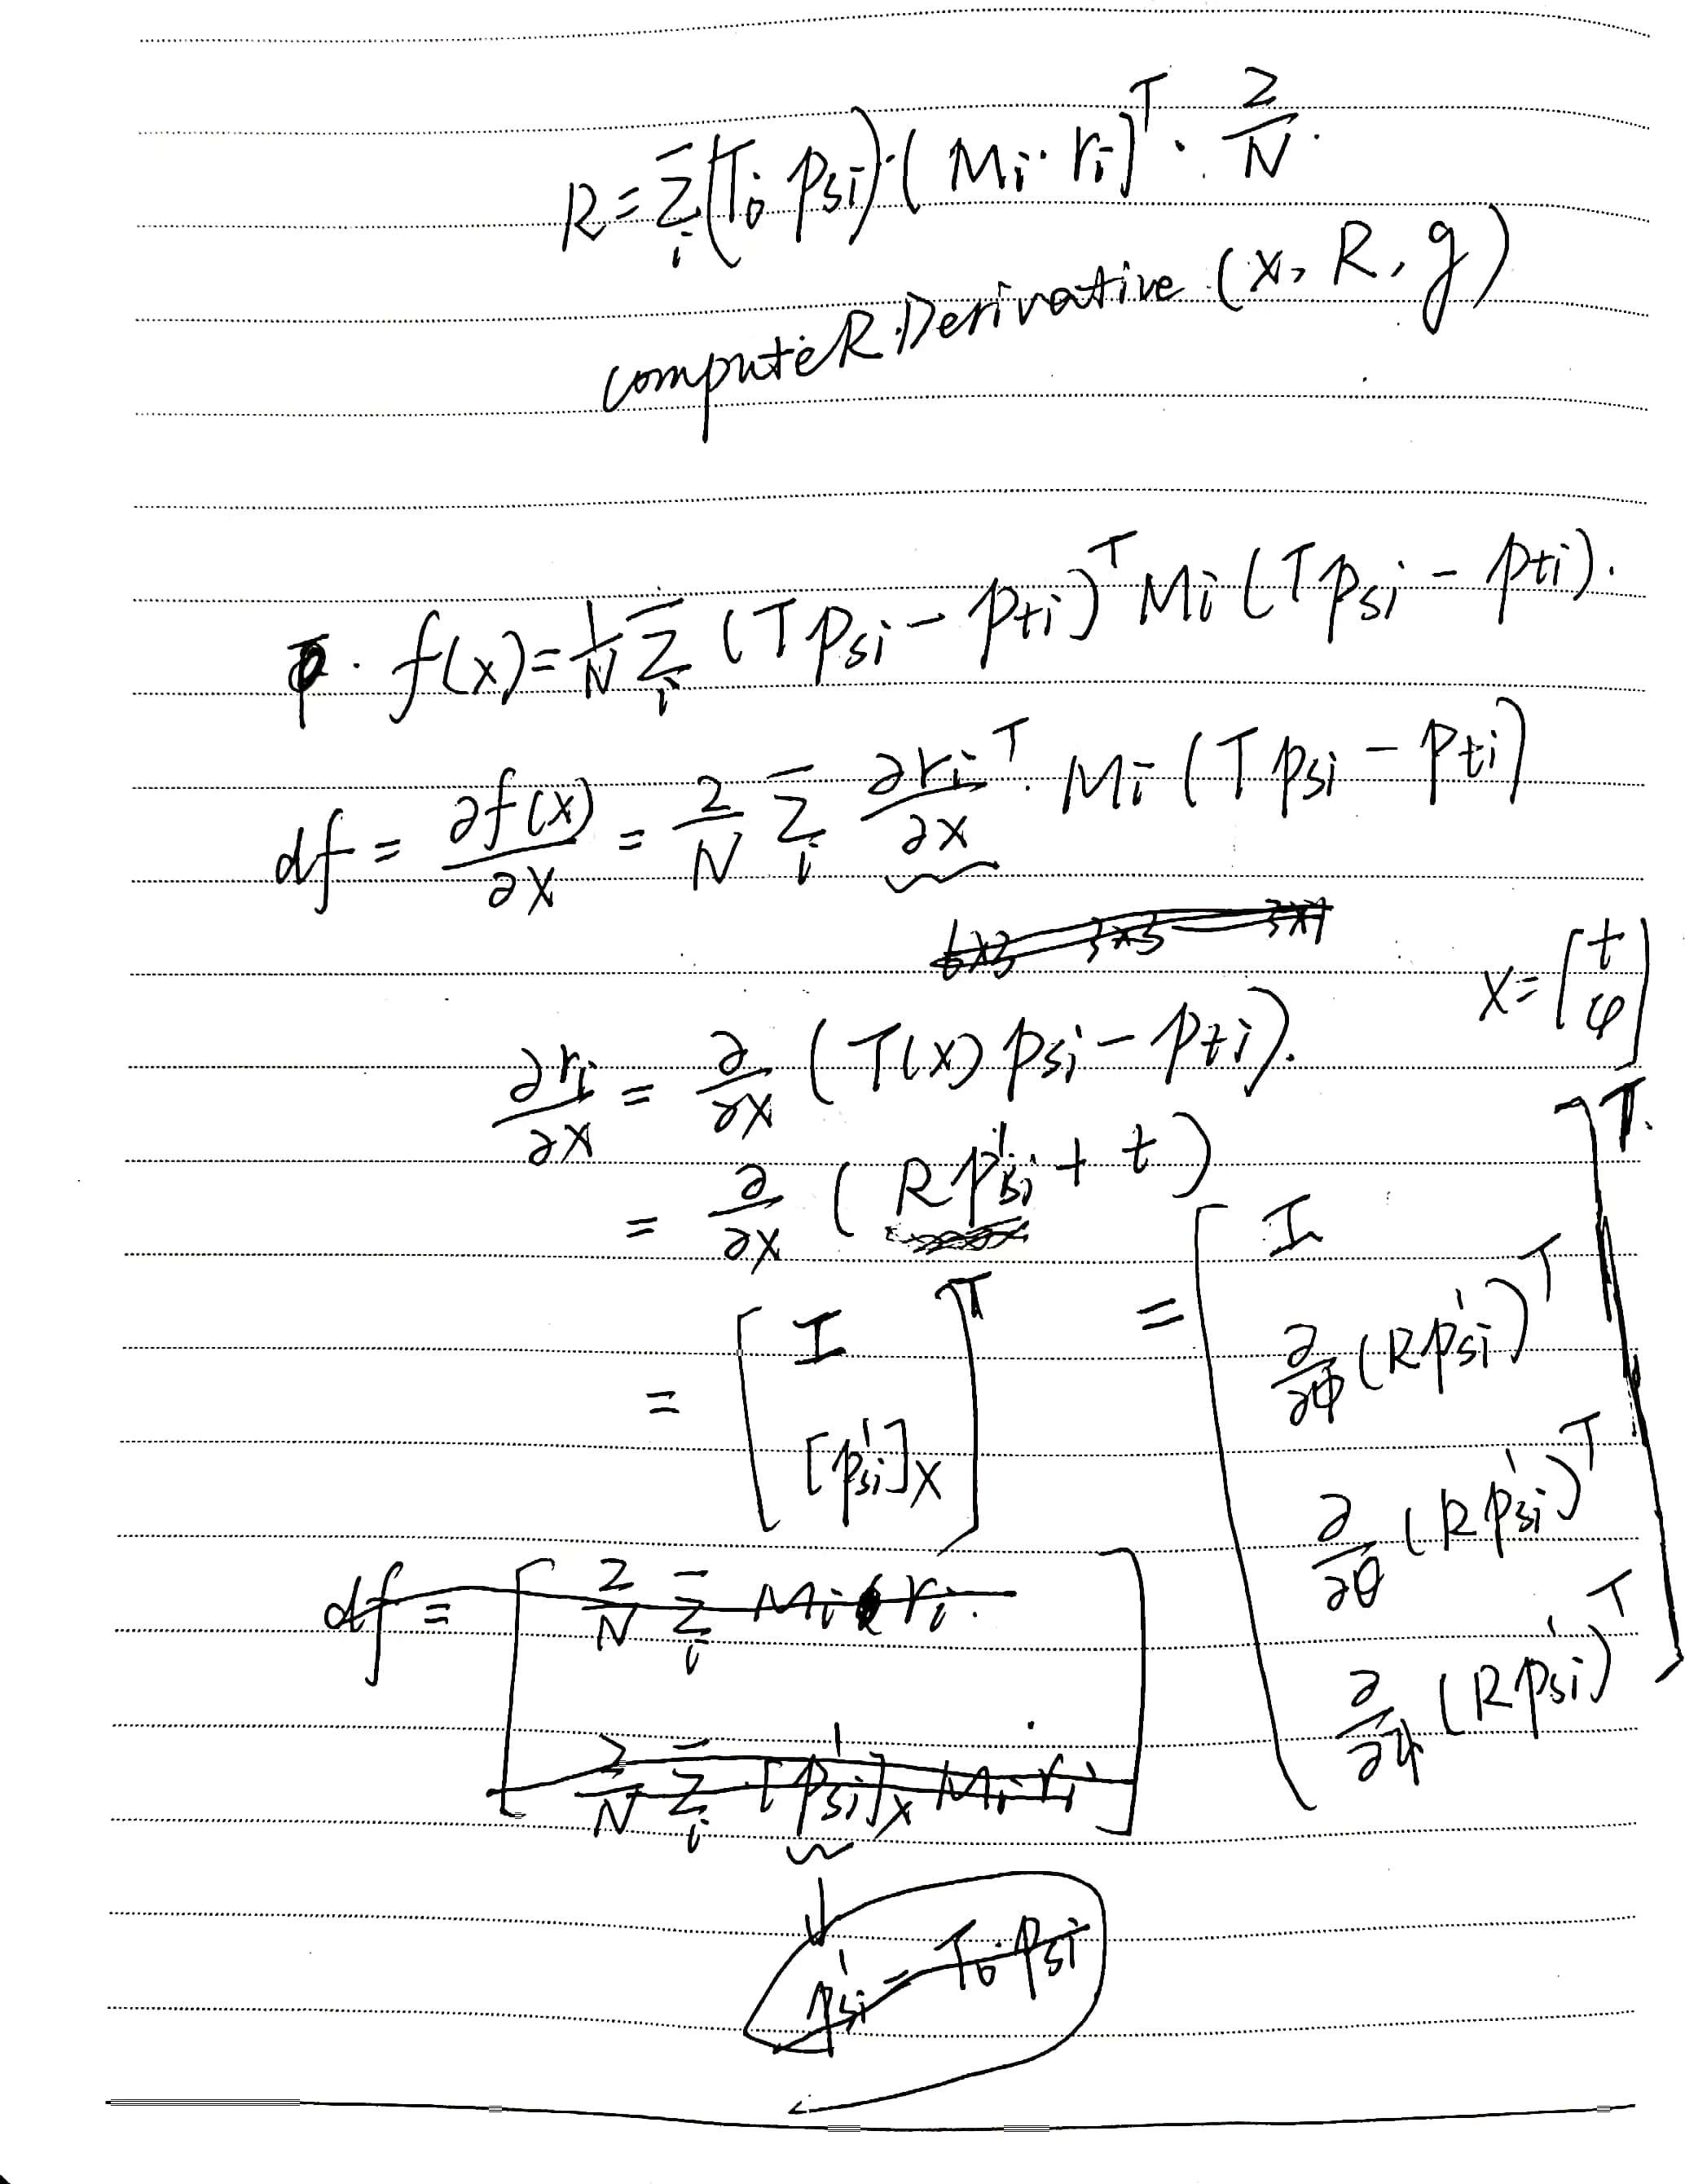 R = Σ_i (T_0 p_si) · (M_i · r_i)^T · 2/N .
computeRDerivative (x, R, g)
· f(x) = 1/N Σ_i (T p_si − p_ti)^T M_i (T p_si − p_ti).
df = ∂f(x)/∂x = 2/N Σ_i ∂r_i/∂x^T · M_i (T p_si − p_ti)
6×3 3×3 3×1
x = [t φ]
∂r_i/∂x = ∂/∂x (T(x) p_si − p_ti).
= ∂/∂x (R p'_si + t)
= [I [p'_si]_×]^T = [I ∂/∂φ (R p'_si)^T ∂/∂θ (R p'_si)^T ∂/∂ψ (R p'_si)^T]^T.
df = [2/N Σ_i M_i r_i . 2/N Σ_i [p'_si]_× M_i r_i]
p'_si = T_0 · p_si